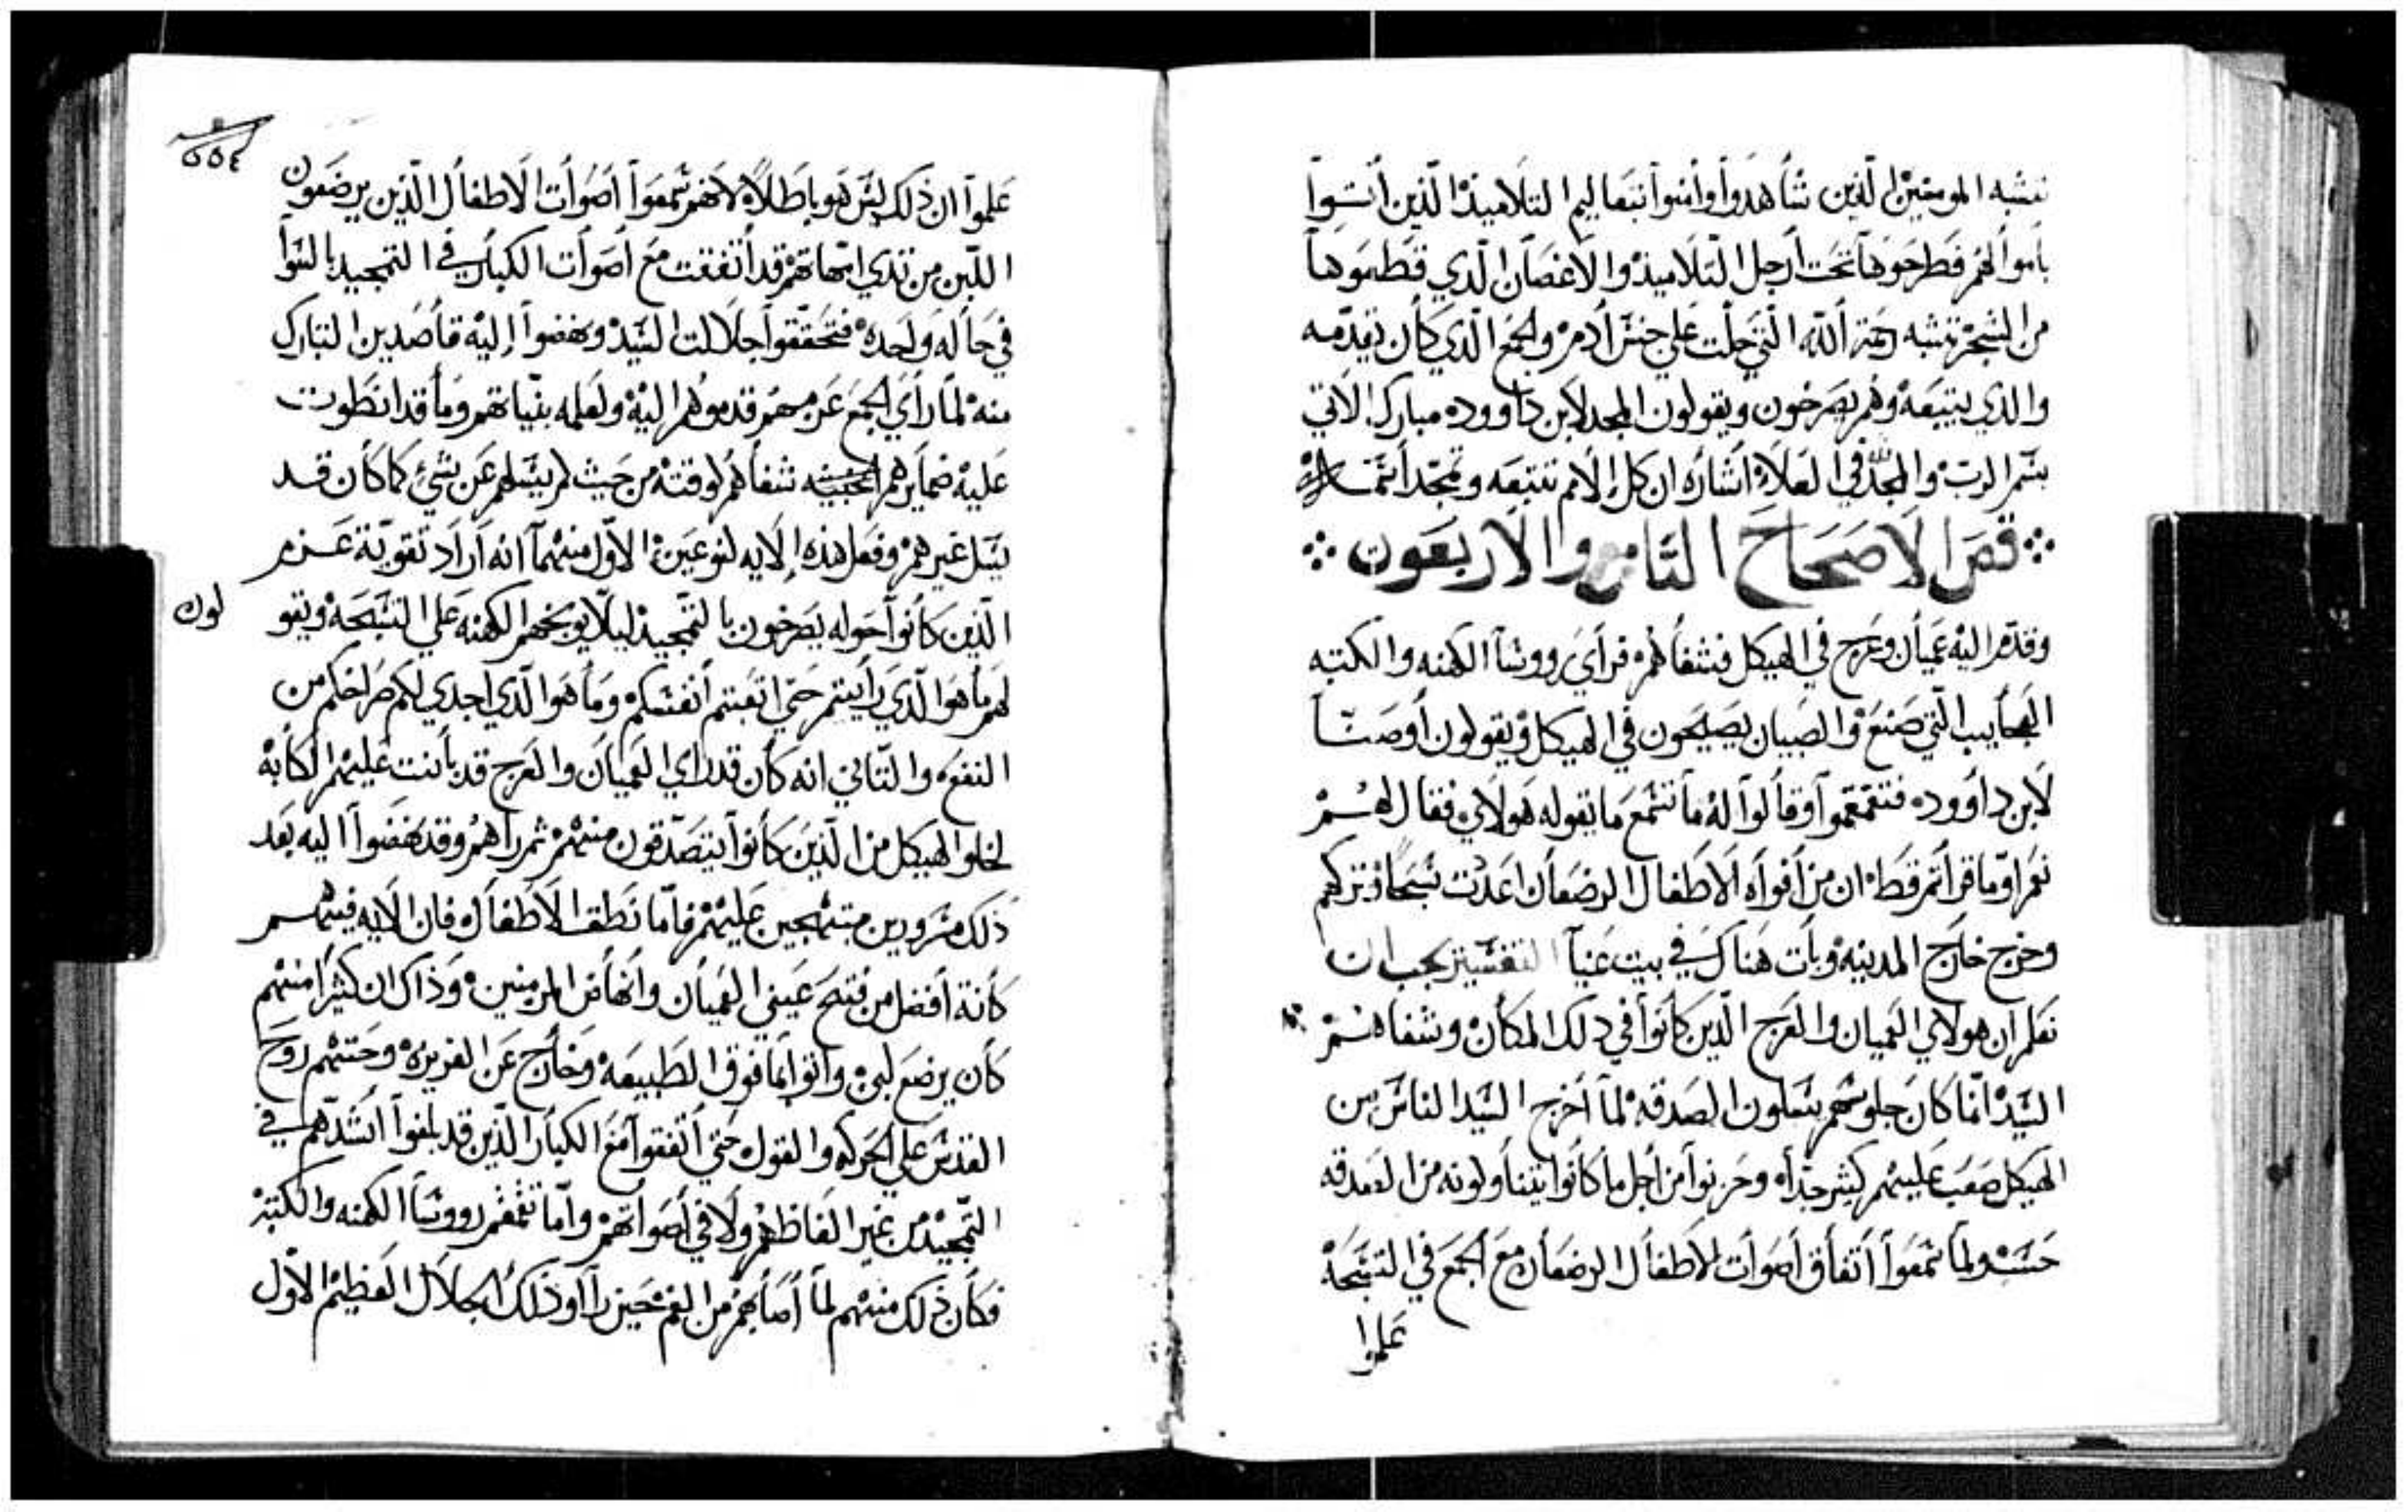 تشبه المومنين الذين شاهدوا وامنوا بتعاليم التلاميذ الذين
فطرحوها تحت ارجل التلاميذ والاغصان الذي قطموها
من الشجر تشبه رحمة الله التي حلت علي جنس ادم والجمع الذي كان تقدمه
والذي يتبعه وهم يصرخون ويقولون المجد لابن داوود مبارك الاتي
بسم الرب والمجد لله في العلا اشاره ان كل الامم تتبعه وتمجد
قص الاصحاح الثامن والاربعون
وقدم اليه عميان وعرج في الهيكل فشفاهم فراي رووسا الكهنه والكتبه
العجايب التي صنع والصبيان يصيحون في الهيكل ويقولون اوصنا
لابن داوود فتقمقموا وقالوا له ما تسمع ما يقوله هولاي فقال لهم
نعم اوما قراتم قط ان من افواه الاطفال الرضعان اعددت تسبحا وتركهم
وخرج خارج المدينه وبات هناك في بيت عنيا التفسير يجب ان
نعلم ان هولاي العميان والعرج الذين كانوا في ذلك المكان وشفاهم
السيد انما كان جلوسهم يسلون الصدقه لما اخرج السيد الناس من
الهيكل صعب عليهم كثير جدا وحزنوا من اجل ما كانوا يتناولونه من الصدقه
حسنه ولما سمعوا اتفاق اصوات الاطفال الرضعان مع الجمع في التسبحة
علموا
٥٥٤
علموا ان ذلك ليس هو باطلا لانهم سمعوا اصوات الاطفال الذين يرضعون
اللبن من ثدي امهاتهم قد اتفقت مع اصوات الكبار في التمجيد بالسوا
في حاله واحده فتحققوا جلالت السيد ونهضوا إليه قاصدين التبارك
منه لما راي الجمع عزمهم قدموهم اليه ولعلمه بنياتهم وما قد انطوت
عليه ضمايرهم شفاهم لوقته من حيث لم يسلهم عن شي كما كان قد
يسل غيرهم وفعل هذه الايه لنوعين الاول منهما انه اراد تقوية عزم
الذين كانوا حوله يصرخون بالتمجيد ليلا يوبخهم الكهنه علي التسبحه ويقو
لون
لهم ما هو الذي رايتم حتي اتعبتم انفسكم وما هو الذي اجدي لكم صراخكم من
النفع والثاني انه كان قد راي العميان والعرج قد بانت عليهم الكابة
لخلو الهيكل من الذين كانوا يتصدقون منهم ثم راهم وقد نهضوا اليه بعد
ذلك مسرورين مبتهجين عليهم فاما نطق الاطفال فان الايه فيهم
كانة افضل من فتح عيني العميان وانهاض المزمنين وذاك ان كثيرا منهم
كان يرضع لبن واتوا بما فوق الطبيعه وخارج عن الغريزه وحثهم روح
القدس علي الحركه والقول حتي اتفقوا مع الكبار الذين قد بلغوا اشدهم في
التمجيد من غير الفاظهم ولا في اصواتهم واما تقمقم رووسا الكهنه والكتبه
فكان ذلك منهم لما اصابهم من الغم حين راوا ذلك الجلال العظيم الاول